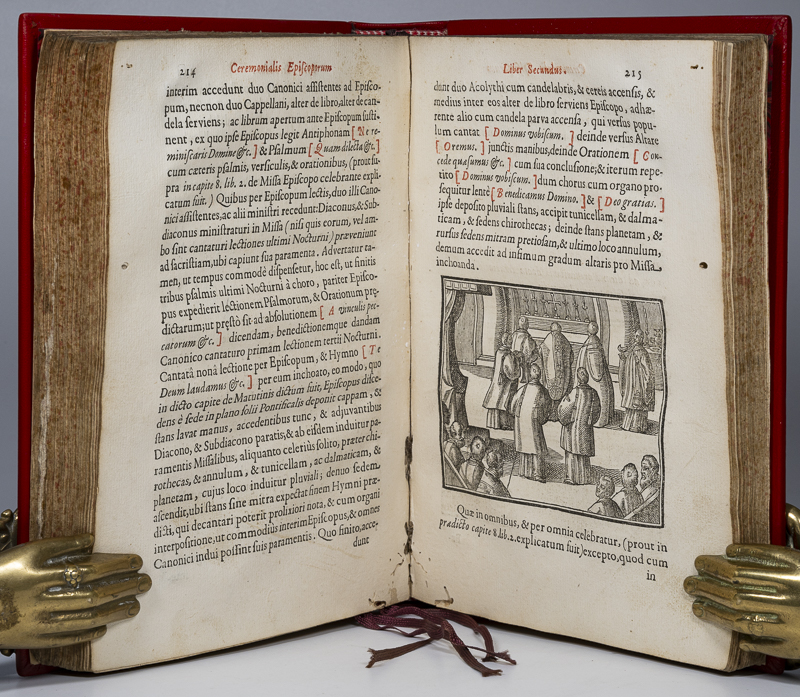 214 Ceremonialis Episcoporum
interim accedunt duo Canonici assistentes ad Episco-
pum, necnon duo Cappellani, alter de libro, alter de can-
dela serviens; ac librum apertum ante Episcopum susti-
nent, ex quo ipse Episcopus legit Antiphonam [Ne re-
miniscaris Domine &c.] & Psalmum [Quam dilecta &c.]
cum cæteris psalmis, versiculis, & orationibus, (prout su-
pra in capite 8. lib. 2. de Missa Episcopo celebrante expli-
catum fuit.) Quibus per Episcopum lectis, duo illi Cano-
nici assistentes, ac alii ministri recedunt: Diaconus, & Sub-
diaconus ministraturi in Missa (nisi quis eorum, vel am-
bo sint cantaturi lectiones ultimi Nocturni) præveniunt
ad sacristiam, ubi capiunt sua paramenta. Advertatur ta-
men, ut tempus commodè dispensetur, hoc est, ut finitis
tribus psalmis ultimi Nocturni à choro, pariter Episco-
pus expedierit lectionem Psalmorum, & Orationum præ-
dictarum; ut prestò sit ad absolutionem [A vinculis pec-
catorum &c.] dicendam, benedictionemque dandam
Canonico cantaturo primam lectionem tertii Nocturni.
Cantatâ nonâ lectione per Episcopum, & Hymno [Te
Deum laudamus &c.] per eum inchoato, eo modo, quo
in dicto capite de Matutinis dictum fuit, Episcopus disce-
dens è sede in plano solii Pontificalis deponit cappam, &
stans lavat manus, accedentibus tunc, & adjuvantibus
Diacono, & Subdiacono paratis; & ab eisdem induitur pa-
ramentis Missalibus, aliquanto celeriùs solito, præter chi-
rothecas, & annulum, & tunicellam, ac dalmaticam, &
planetam, cujus loco induitur pluviali; denuo sedem
ascendit, ubi stans sine mitra expectat finem Hymni præ-
dicti, qui decantari poterit prolixiori nota, & cum organi
interpositione, ut commodiùs interim Episcopus, & omnes
Canonici indui possint suis paramentis. Quo finito, acce-
dunt
Liber Secundus. 215
dunt duo Acolythi cum candelabris, & cereis accensis, &
medius inter eos alter de libro serviens Episcopo, adhæ-
rente alio cum candela parva accensa, qui versus popu-
lum cantat [Dominus vobiscum.] deinde versus Altare
[Oremus.] junctis manibus, deinde Orationem [Con-
cede quæsumus &c.] cum sua conclusione; & iterum repe-
tito [Dominus vobiscum.] dum chorus cum organo pro-
sequitur lentè [Benedicamus Domino.] & [Deo gratias.]
ipse deposito pluviali stans, accipit tunicellam, & dalma-
ticam, & sedens chirothecas; deinde stans planetam, &
rursus sedens mitram pretiosam, & ultimo loco annulum,
demum accedit ad infimum gradum altaris pro Missa
inchoanda.
Quæ in omnibus, & per omnia celebratur, (prout in
prædicto capite 8. lib. 2. explicatum fuit) excepto, quod cum
in